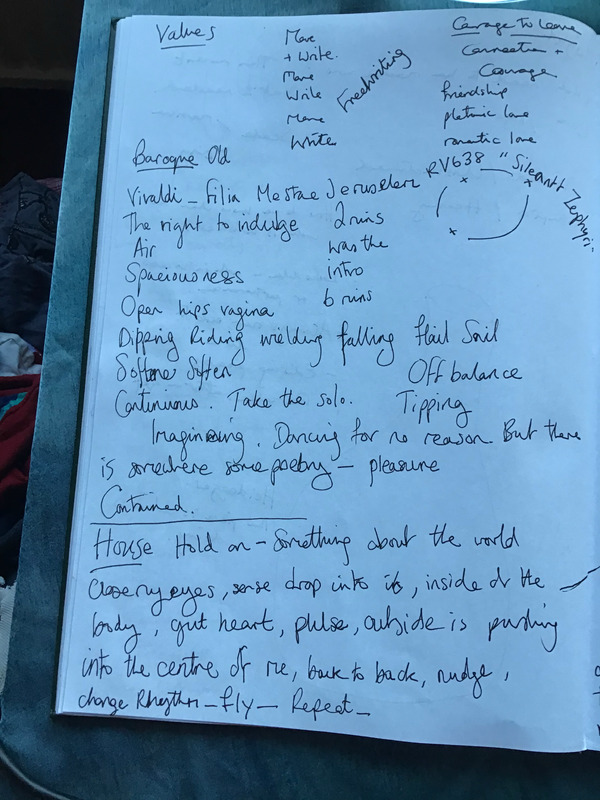 Values
Move
+ Write.
Move
Write
Move
Write
Freewriting
Courage to Leave
Connection +
Courage
friendship
platonic love
romantic love
Baroque Old
Vivaldi - Filia Mestae Jerusalem RV638 "Sileant Zephyri.
The right to indulge 2 mins
Air was the
Spaciousness intro
Open hips vagina 6 mins
Dipping Riding wielding falling flail Sail
Soften Off balance
Continuous. Take the solo. Tipping
Imagining. Dancing for no reason. But there
is somewhere some poetry - pleasure
Contained.
House Hold on - Something about the world
close my eyes, sense drop into it, inside of the
body, gut heart, pulse, outside is pushing
into the centre of me, back to back, nudge,
change Rhythm - fly - Repeat -